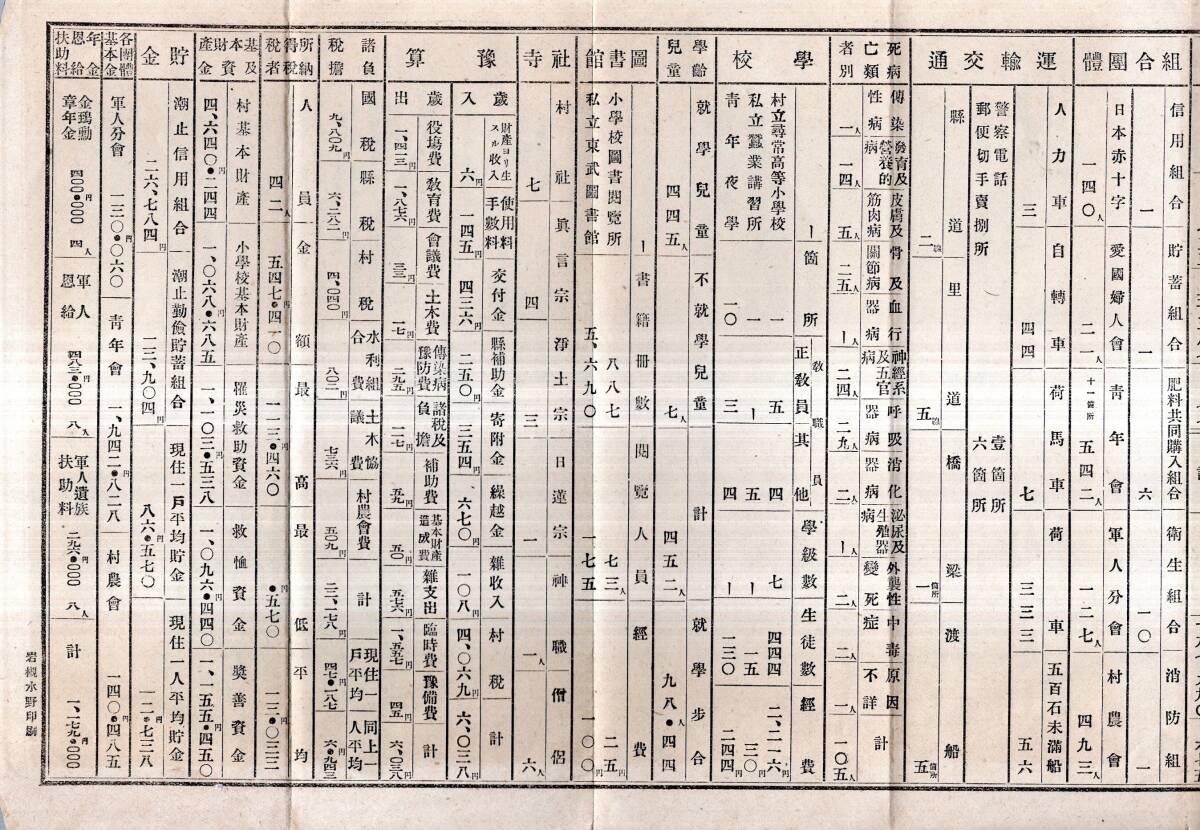 組合團體
信用組合 貯蓄組合 肥料共同購入組合 衛生組合 消防組
一 一 六 一〇 一
日本赤十字 愛國婦人會 靑年會 軍人分會 村農會
一四〇人 二一人 十一箇所 五四二人 一二七人 四九三人
運輸交通
人力車 自轉車 荷馬車 荷車 五百石未滿船
三 四四 七 三三三 五六
警察電話 壹箇所
郵便切手賣捌所 六箇所
縣道 里道 橋梁 渡船
二線 五線 一箇所 五箇所
學校
箇所 敎職員 正敎員 其他 學級數 生徒數 經費
村立尋常高等小學校 一 五 四 七 四四四 二、二一六円
私立蠶業講習所 一 一 五 一 一五 三〇円
靑年夜學 一〇 三 四 一 一三〇 二四四円
死亡病類別者
傳染性病 發育及營養的病 皮膚及筋肉病 骨及關節病 血行器病 神經系及五官器病 呼吸器病 消化器病 泌尿及生殖器病 外襲性變死 中毒症 原因不詳 計
一人 一四人 五人 二五人 一人 二四人 二九人 二人 一人 二人 二人 一人 一〇五人
學齡兒童
就學兒童 不就學兒童 計 就學步合
四四五人 七人 四五二人 九八・四四
圖書館
書籍冊數 閱覽人員 經費
小學校圖書閱覽所 一 八八七 七三人 二五円
私立東武圖書館 五、六九〇 一七五 一〇〇円
社寺
村社 眞言宗 淨土宗 日蓮宗 神職 僧侶
七 四 三 一 一人 六人
豫算
歲入
財產ヨリ生スル收入 使用料手數料 交付金 縣補助金 寄附金 繰越金 雜收入 村稅 計
六円 一四五円 四三六円 二五〇円 三五四円 六七〇円 一〇八円 四、〇六九円 六、〇三八円
歲出
役場費 敎育費 會議費 土木費 傳染病豫防費 諸稅及負擔 補助費 基本財產造成費 雜支出 臨時費 豫備費 計
諸稅負擔
國稅 縣稅 村稅 水利組合費 土木協議費 村農會費 計 現住一戶平均 同上一人平均
九、八〇九円 六、二八二円 四、〇四〇円 八〇二円 七三六円 五〇九円 四七・一八七円 六・九四三円
所得稅及納稅者
人員 金額 最高 最低 平均
四二人 五四七・四一〇円 一一三・四六〇円 ・五七〇円 一三・〇三三円
基本財產及資金
村基本財產 小學校基本財產 罹災救助資金 救恤資金 奬善資金
四、六四〇・二四四円 一、〇六八・六八五円 一、一〇三・五三八円 一、〇九六・四四〇円 一、一五五・四五〇円
貯金
潮止信用組合 潮止勤儉貯蓄組合 現住一戶平均貯金 現住一人平均貯金
二六、七八四円 一三、九〇四円 八六・五七〇円 一二・七三八円
各團體基本金
軍人分會 一三〇・〇六〇円 靑年會 一、九四二・八二八円 村農會 一四〇・四八五円
年金恩給扶助料
金鵄勳章年金 四〇〇・〇〇〇円 四人 軍人恩給 四八三・〇〇〇円 八人 軍人遺族扶助料 二九六・〇〇〇円 八人 計 一、一七九・〇〇〇円
岩槻水野印刷